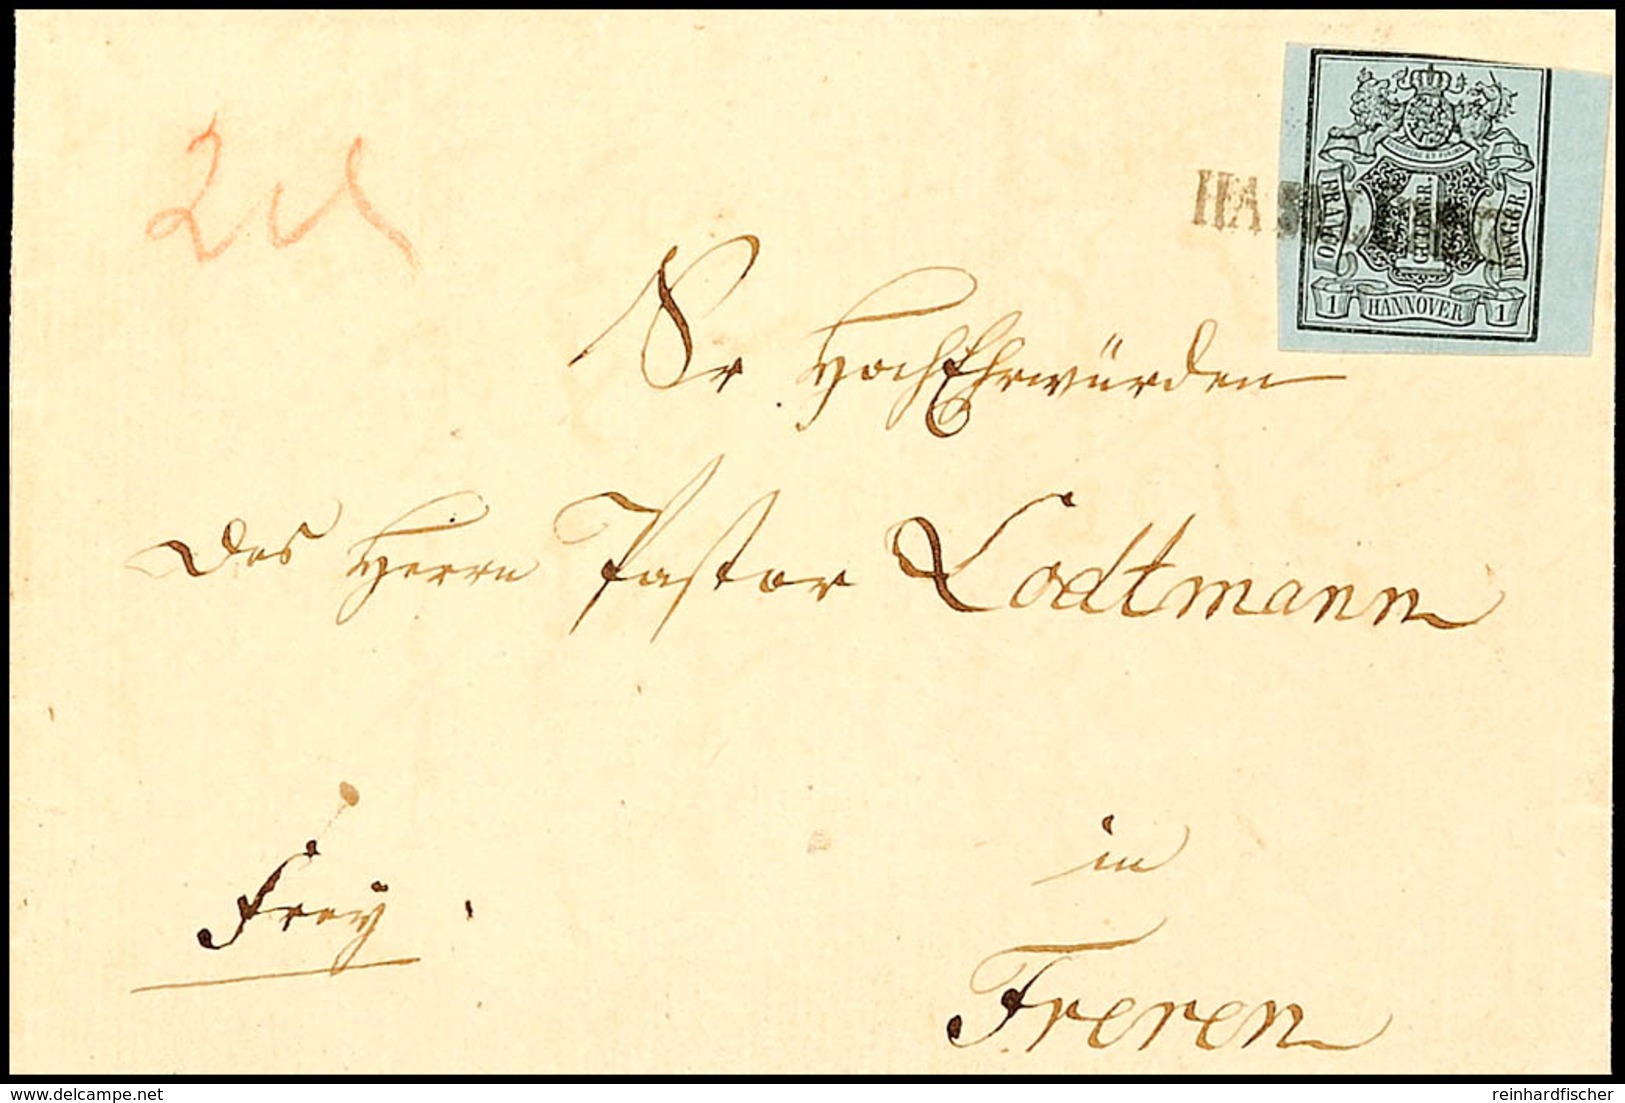 Sr HochEhrwürden
des Herrn Pastor Lodtmann
in
Freren
Frey
HA
FRANCO
1 GUTENGR.
EIN GGR.
1 HANNOVER 1
delcampe.net
reinhardfischer